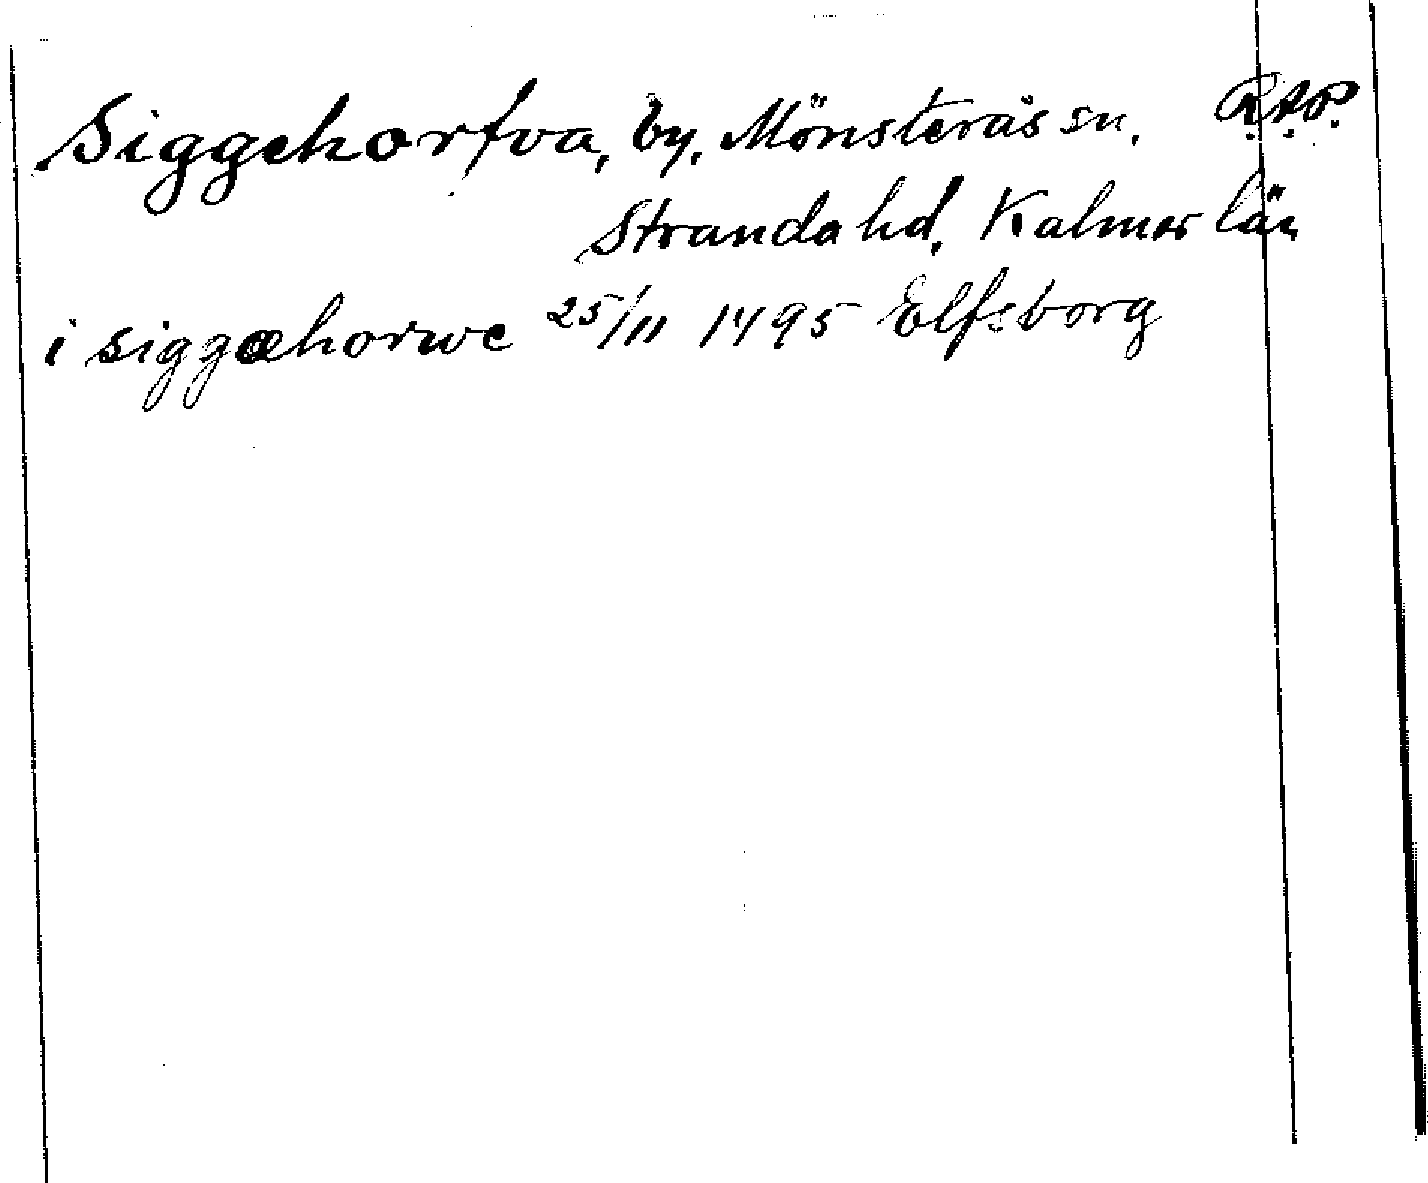 Siggehorfva, by, Mönsterås sn. R.A.P.
Stranda hd, Kalmar län
i siggæhorwe 25/11 1495 Elfsborg